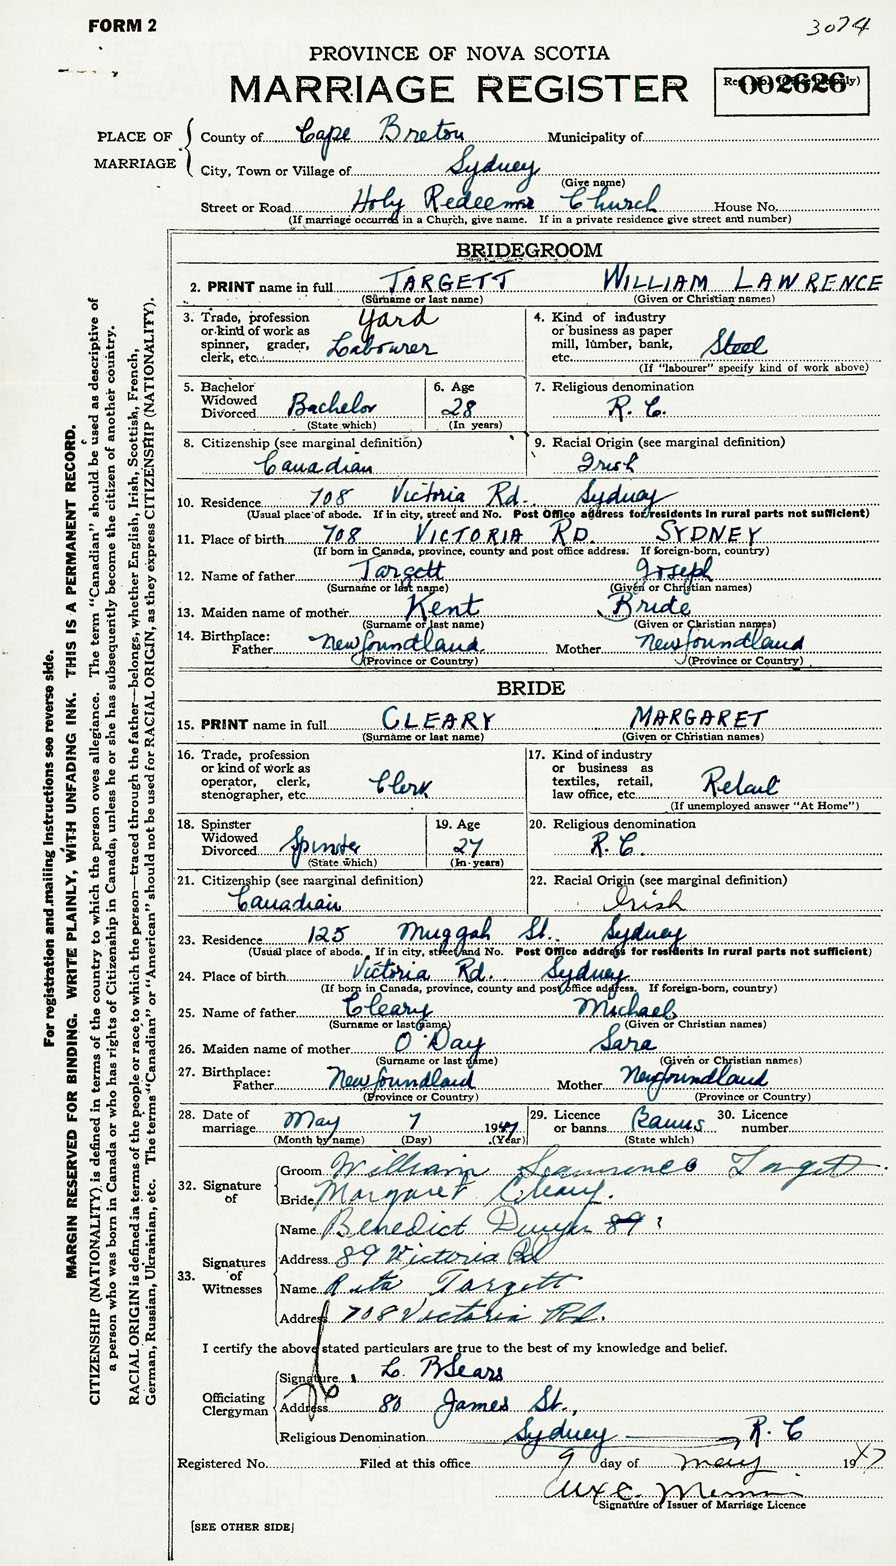 FORM 2
3074
PROVINCE OF NOVA SCOTIA
MARRIAGE REGISTER
002626
PLACE OF MARRIAGE
County of Cape Breton Municipality of
City, Town or Village of Sydney
(Give name)
Street or Road Holy Redeemer Church House No.
(If marriage occurred in a Church, give name. If in a private residence give street and number)
BRIDEGROOM
2. PRINT name in full TARGETT WILLIAM LAWRENCE
(Surname or last name) (Given or Christian names)
3. Trade, profession or kind of work as spinner, grader, clerk, etc. Yard Labourer
4. Kind of industry or business as paper mill, lumber, bank, etc. Steel
(If "labourer" specify kind of work above)
5. Bachelor Widowed Divorced Bachelor
(State which)
6. Age 28
(In years)
7. Religious denomination
R. C.
8. Citizenship (see marginal definition)
Canadian
9. Racial Origin (see marginal definition)
Irish
10. Residence 708 Victoria Rd. Sydney
(Usual place of abode. If in city, street and No. Post Office address for residents in rural parts not sufficient)
11. Place of birth 708 VICTORIA RD. SYDNEY
(If born in Canada, province, county and post office address. If foreign-born, country)
12. Name of father Targett Joseph
(Surname or last name) (Given or Christian names)
13. Maiden name of mother Kent Bride
(Surname or last name) (Given or Christian names)
14. Birthplace:
Father Newfoundland Mother Newfoundland
(Province or Country) (Province or Country)
BRIDE
15. PRINT name in full CLEARY MARGARET
(Surname or last name) (Given or Christian names)
16. Trade, profession or kind of work as operator, clerk, stenographer, etc. Clerk
17. Kind of industry or business as textiles, retail, law office, etc. Retail
(If unemployed answer "At Home")
18. Spinster Widowed Divorced Spinster
(State which)
19. Age 27
(In years)
20. Religious denomination
R. C.
21. Citizenship (see marginal definition)
Canadian
22. Racial Origin (see marginal definition)
Irish
23. Residence 125 Muggah St. Sydney
(Usual place of abode. If in city, street and No. Post Office address for residents in rural parts not sufficient)
24. Place of birth Victoria Rd. Sydney
(If born in Canada, province, county and post office address. If foreign-born, country)
25. Name of father Cleary Michael
(Surname or last name) (Given or Christian names)
26. Maiden name of mother O'Day Sara
(Surname or last name) (Given or Christian names)
27. Birthplace:
Father Newfoundland Mother Newfoundland
(Province or Country) (Province or Country)
28. Date of marriage May 7 1947
(Month by name) (Day) (Year)
29. Licence or banns Banns
(State which)
30. Licence number
32. Signature of
Groom William Lawrence Targett
Bride Margaret Cleary.
33. Signatures of Witnesses
Name Benedict Dwyer 89
Address 89 Victoria Rd
Name Rita Targett
Address 708 Victoria Rd.
I certify the above stated particulars are true to the best of my knowledge and belief.
Officiating Clergyman
Signature L. B Sears
Address 80 James St.,
Religious Denomination Sydney R. C
Registered No. Filed at this office 9 day of may 1947
Signature of Issuer of Marriage Licence
[SEE OTHER SIDE]
For registration and mailing instructions see reverse side.
MARGIN RESERVED FOR BINDING. WRITE PLAINLY, WITH UNFADING INK. THIS IS A PERMANENT RECORD.
CITIZENSHIP (NATIONALITY) is defined in terms of the country to which the person owes allegiance. The term "Canadian" should be used as descriptive of
a person who was born in Canada or who has rights of Citizenship in Canada, unless he or she has subsequently become the citizen of another country.
RACIAL ORIGIN is defined in terms of the people or race to which the person—traced through the father—belongs, whether English, Irish, Scottish, French,
German, Russian, Ukrainian, etc. The terms "Canadian" or "American" should not be used for RACIAL ORIGIN, as they express CITIZENSHIP (NATIONALITY).